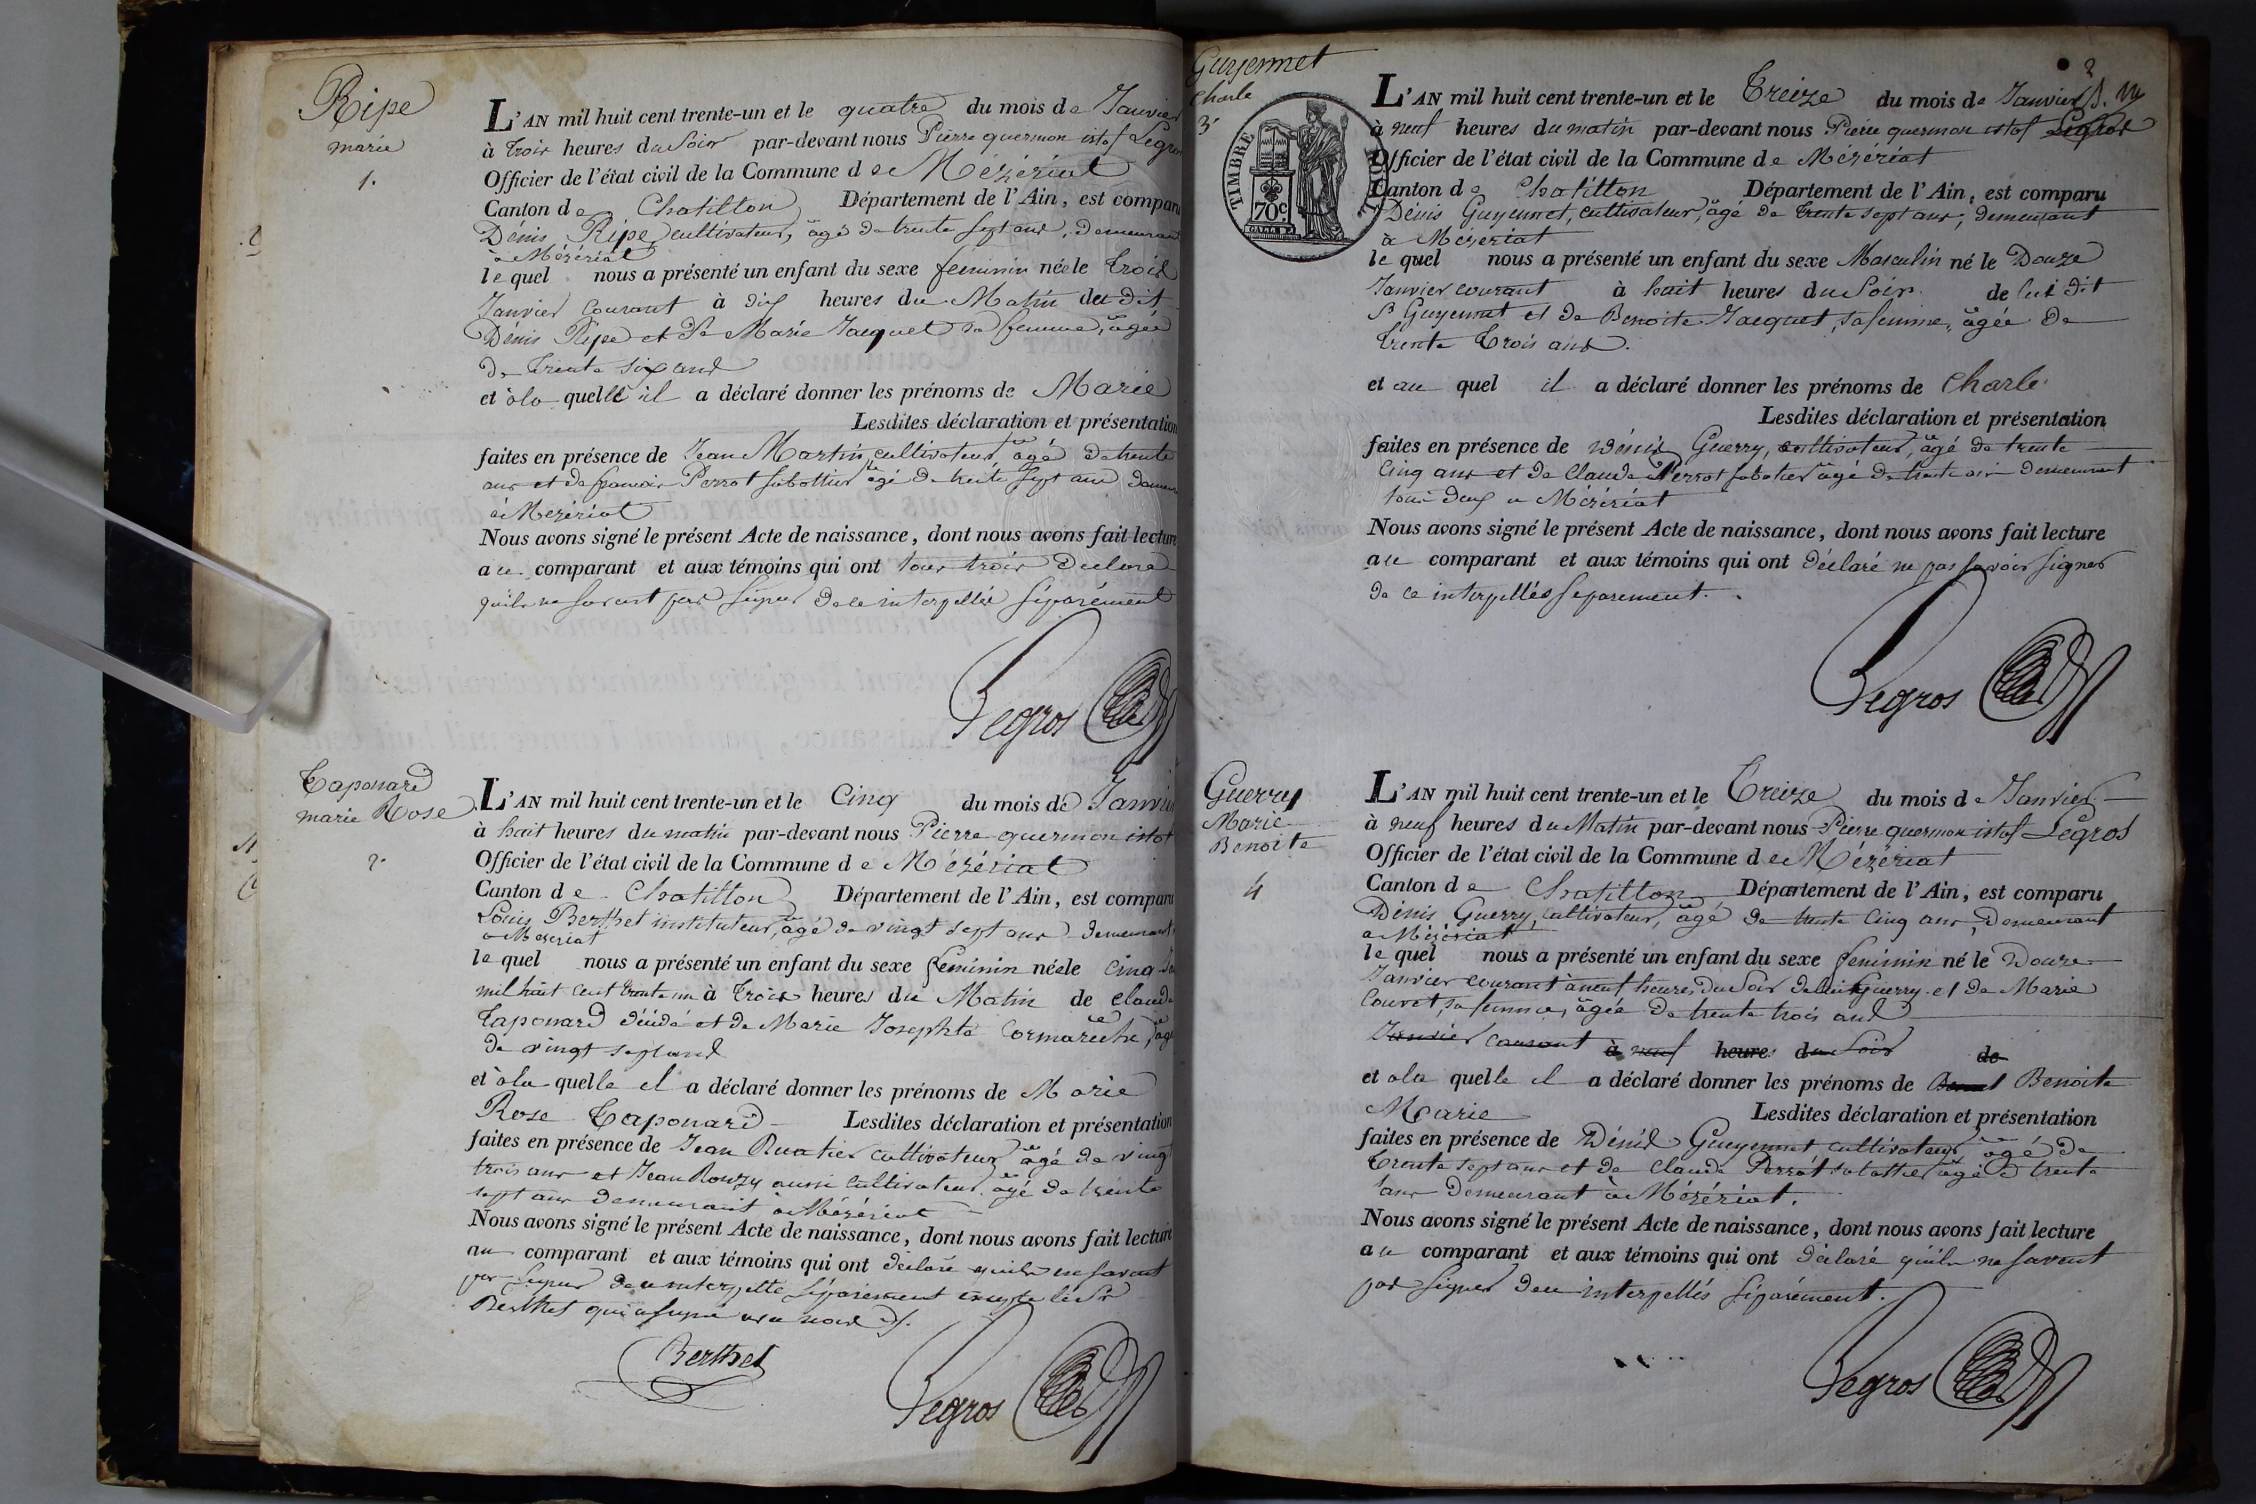 Ripe
marie
1.
L'AN mil huit cent trente-un et le quatre du mois de Janvier
à trois heures du Soir par-devant nous Pierre quermon istof Legros
Officier de l'état civil de la Commune de Mézériat
Canton de Chatillon Département de l'Ain, est comparu
Dénis Ripe cultivateur, âgé de trente sept ans, demeurant
à Mézériat
le quel nous a présenté un enfant du sexe feminin née le trois
Janvier courant à dix heures du Matin du dit
Dénis Ripe et de Marie Jacquet sa femme, âgée
de trente six ans
et à la quelle il a déclaré donner les prénoms de Marie
Lesdites déclaration et présentation
faites en présence de Jean Martin, cultivateur âgé de trente
ans et de francois Perrot sabottier âgé de trente sept ans demeu
à Mézériat
Nous avons signé le présent Acte de naissance, dont nous avons fait lecture
au comparant et aux témoins qui ont tous trois declaré
qu'ils ne savent pas signer de ce interpellés séparément
Legros
Taponard
marie Rose
2.
L'AN mil huit cent trente-un et le Cinq du mois de Janvier
à huit heures du matin par-devant nous Pierre quermon istof
Officier de l'état civil de la Commune de Mézériat
Canton de Chatillon Département de l'Ain, est comparu
Louis Berthet instituteur, âgé de vingt sept ans demeurant
à Mézériat
le quel nous a présenté un enfant du sexe feminin née le cinq
mil huit cent trente un à trois heures du Matin de claude
Taponard décédé et de Marie Josephte Cormarèche, âgée
de vingt sept ans
et à la quelle il a déclaré donner les prénoms de Marie
Rose Taponard Lesdites déclaration et présentation
faites en présence de Jean cultivateur âgé de vingt
trois ans et Jean Rouzy aussi cultivateur âgé de trente
sept ans demeurant à Mézériat
Nous avons signé le présent Acte de naissance, dont nous avons fait lecture
au comparant et aux témoins qui ont déclaré qu'ils ne savent
pas signer de ce interpellé séparément excepté le Sr
Berthet qui a signé avec nous
Berthet
Legros
Guyennet
Charle
3
2
TIMBRE ROYAL
70c
L'AN mil huit cent trente-un et le Treize du mois de Janvier
à neuf heures du matin par-devant nous Pierre quermon istof Legros
Officier de l'état civil de la Commune de Mézériat
Canton de Chatillon Département de l'Ain, est comparu
Dénis Guyennet, cultivateur, âgé de trente sept ans, demeurant
à Mézériat
le quel nous a présenté un enfant du sexe Masculin né le Douze
Janvier courant à huit heures du Soir de lui dit
Sr Guyennet et de Benoite Jacquet, sa femme, âgée de
trente trois ans.
et au quel il a déclaré donner les prénoms de Charle
Lesdites déclaration et présentation
faites en présence de Dénis Guerry, cultivateur, âgé de trente
Cinq ans et de Claude Perrot sabotier âgé de trente ans demeurant
tous deux à Mézériat
Nous avons signé le présent Acte de naissance, dont nous avons fait lecture
au comparant et aux témoins qui ont déclaré ne pas savoir signer
de ce interpellés séparement.
Legros
Guerry
Marie
Benoite
4
L'AN mil huit cent trente-un et le Treize du mois de Janvier
à neuf heures du Matin par-devant nous Pierre quermon istof Legros
Officier de l'état civil de la Commune de Mézériat
Canton de Chatillon Département de l'Ain, est comparu
Dénis Guerry, cultivateur, âgé de trente Cinq ans, Demeurant
à Mézériat
le quel nous a présenté un enfant du sexe feminin né le Douze
Janvier courant à neuf heures du Soir de lui Guerry et de Marie
Couvet, sa femme, âgée de trente trois ans
Janvier courant à neuf heures du Soir de
et à la quelle il a déclaré donner les prénoms de Benoite
Marie Lesdites déclaration et présentation
faites en présence de Dénis Gueyennet cultivateur âgé de
trente sept ans et de Claude Perrot sabottier âgé de trente
ans Demeurant à Mézériat.
Nous avons signé le présent Acte de naissance, dont nous avons fait lecture
au comparant et aux témoins qui ont déclaré qu'ils ne savent
pas signer de ce interpellés séparément.
Legros